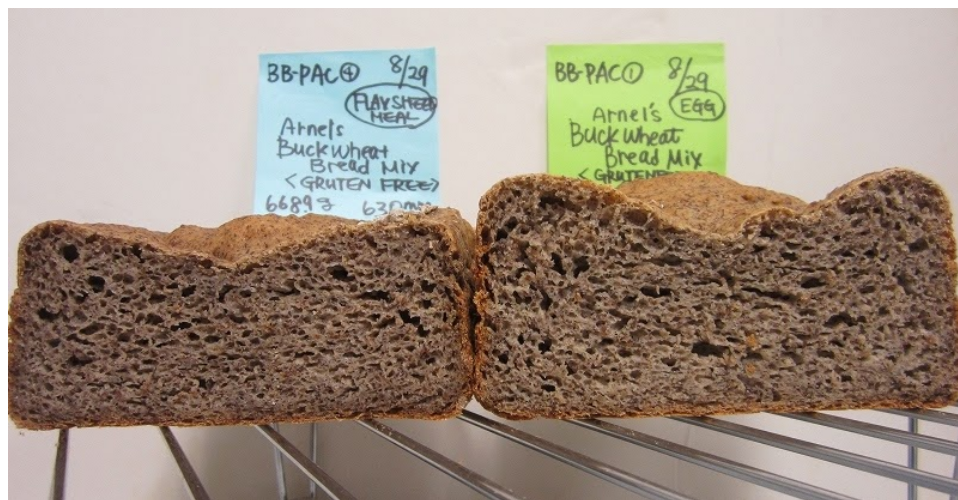 BB-PAC④ 8/29
FLAYSHEED
MEAL
Arnel's
Buckwheat
Bread Mix
<GRUTEN FREE>
66899
BB-PAC① 8/29
EGG
Arnel's
Buckwheat
Bread Mix